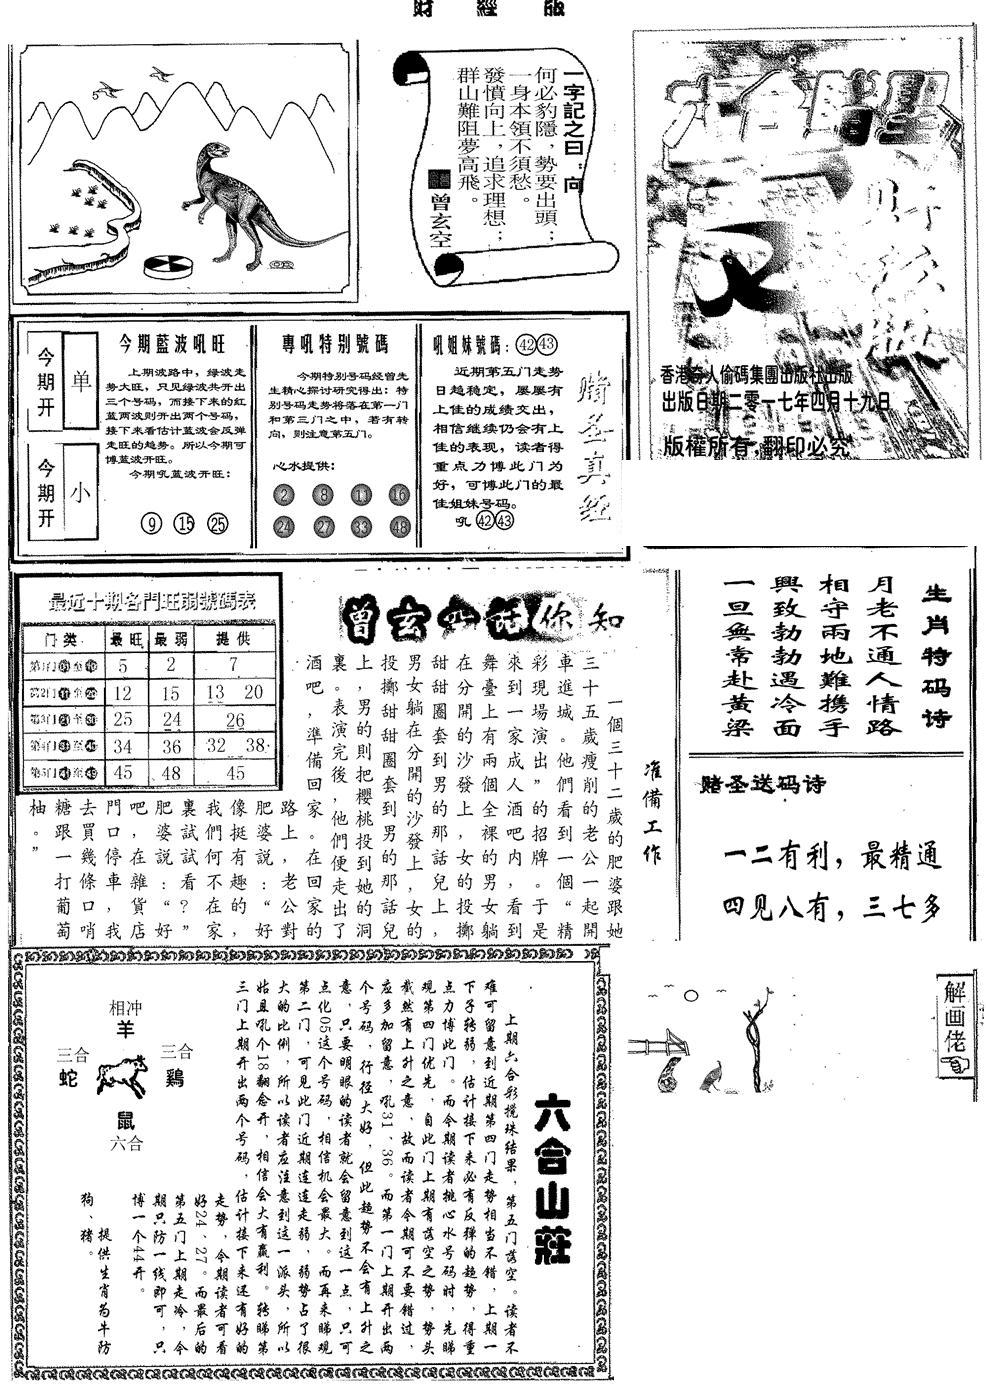 財經版
一字記之曰：向
何必豹隱，勢要出頭；
一身本領不須愁。
發憤向上，追求理想；
群山難阻夢高飛。
曾玄空
香港奇人偷碼集團出版社出版
出版日期二零一七年四月十九日
版權所有，翻印必究
今期开
单
今期开
小
今期藍波吼旺
上期波路中，绿波走
势大旺，只见绿波共开出
三个号码，而接下来的红
蓝两波则开出两个号码，
接下来看估计蓝波会反弹
走旺的趋势。所以今期可
博蓝波开旺。
今期吼蓝波开旺：
9 15 25
專吼特别號碼
今期特别号码经曾先
生精心探讨研究得出：特
别号码走势将落在第一门
和第三门之中，若有转
向，则注意第五门。
心水提供：
2 8 11 16
24 27 33 48
吼姐妹號碼：42 43
近期第五门走势
日趋稳定，屡屡有
上佳的成绩交出，
相信继续仍会有上
佳的表现，读者得
重点力博此门为
好，可博此门的最
佳姐妹号码。
吼 42 43
赌圣真经
最近十期各門旺弱號碼表
门类 最旺 最弱 提供
第1门01至10 5 2 7
第2门11至20 12 15 13 20
第3门21至30 25 24 26
第4门31至40 34 36 32 38
第5门41至49 45 48 45
曾玄空話你知
准備工作
一個三十二歲的肥婆跟她
三十五歲瘦削的老公一起開
車進城。他們看到一個“精
彩現場演出”的招牌。于是
來到一家成人酒吧内，看到
舞臺上有兩個全裸的男女躺
在分開的沙發上，女的投擲
甜甜圈套到男的那話兒上，
男女躺在分開的沙發上，女的
投擲甜甜圈套到男的那話兒
上，男的則把櫻桃投到她的洞
裏。表演完後，他們便走出了
酒吧，準備回家。在回家的
路上，老公對
肥婆説：“好
像挺有趣的，
我們何不在家
裏試試看？”
肥婆説：“好
吧，在雜貨店
門口停車，我
去買幾條口哨
糖跟一打葡萄
柚。”
生肖特码诗
月老不通人情路
相守兩地難携手
興致勃勃遇冷面
一旦無常赴黃梁
赌圣送码诗
一二有利，最精通
四见八有，三七多
解画佬
六合山莊
上期六合彩搅珠结果，第五门落空。读者不
难可留意到近期第四门走势相当不错，上期一
下子转弱，估计接下来必有反弹的趋势，得重
点力博此门。而今期读者挑心水号码时，先睇
现第四门优先，自此门上期有落空之势，势头
截然有上升之意，故而读者今期可不要错过，
应多加留意，吼31、36。而第一门上期开出两
个号码，行径大好，但此趋势不会有上升之
意，只要明眼的读者就会留意到这一点，只可
点化05这个号码，相信机会最大。而再来睇观
第二门，可见此门近期连连走弱，弱势占了很
大的比例，所以读者应注意到这一派头，所以
姑且吼个18翻念开，相信会大有赢利。转睇第
三门上期开出两个号码，估计接下来还有好的
走势，今期读者可看
好24、27。而最后的
第五门上期走冷，今
期只防一线即可，只
博一个44开。
提供生肖为牛防
狗、猪。
相冲
羊
三合
蛇
三合
鷄
鼠
六合